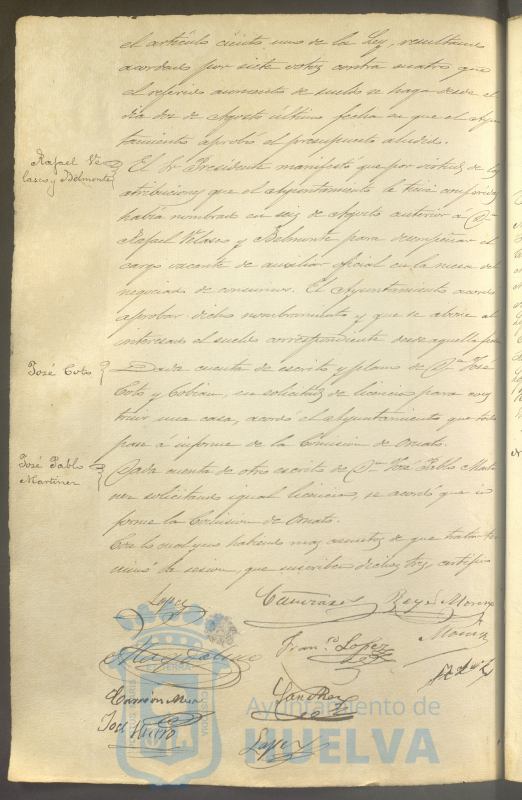 el artículo ciento uno de la Ley, resultando
acordado por siete votos contra cuatro que
el referido aumento de sueldo se haga desde el
día dos de Agosto último fecha en que el Ayun
tamiento aprobó el presupuesto aludido.
Rafael Ve
lasco y Belmonte
El Sr Presidente manifestó que por virtud de las
atribuciones que el Ayuntamiento le tiene conferidas
había nombrado en seis de Agosto anterior a Dn
Rafael Velasco y Belmonte para desempeñar el
cargo vacante de auxiliar oficial en la mesa del
negociado de consumos. El Ayuntamiento acordó
aprobar dicho nombramiento y que se abone al
interesado el sueldo correspondiente desde aquella fecha
José Coto
Dada cuenta de escrito y plano de Dn José
Coto y Cobian, en solicitud de licencia para cons
truir una casa, acordó el Ayuntamiento que todo
pase á informe de la Comision de Ornato.
José Pablo
Martinez
Dada cuenta de otro escrito de Dn José Pablo Marti
nez solicitando igual licencia, se acordó que in
forme la Comision de Ornato.
Con lo cual y no habiendo mas asuntos de que tratar ter
minó la sesion, que suscriben dichos Sres, certifico
Lopez
Reyes Moreno
Franco Lopez
Sanchez
Lopez
Ayuntamiento de
HUELVA